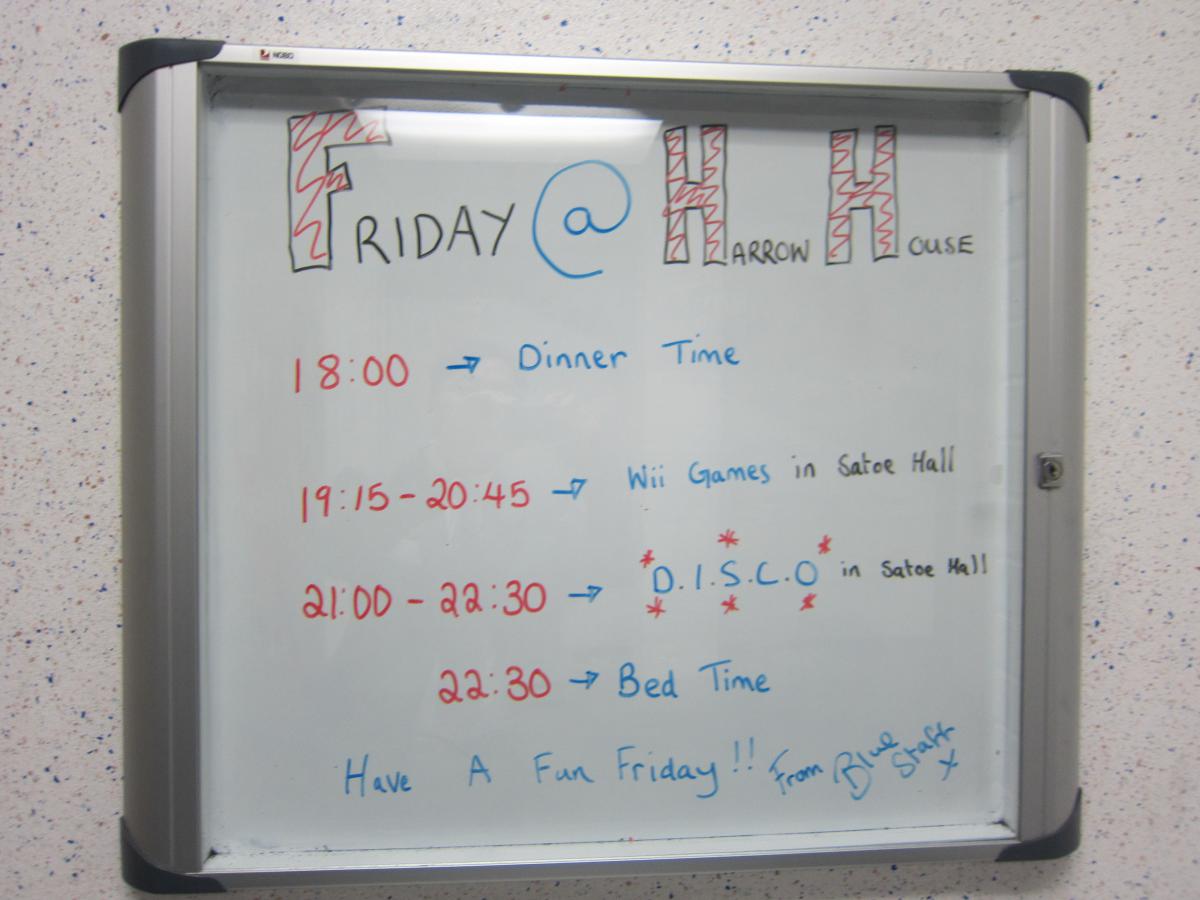 NOBO
FRIDAY @ HARROW HOUSE
18:00 → Dinner Time
19:15 - 20:45 → Wii Games in Satoe Hall
21:00 - 22:30 → *D.I.S.C.O* in Satoe Hall
22:30 → Bed Time
Have A Fun Friday!! From Blue Staff x